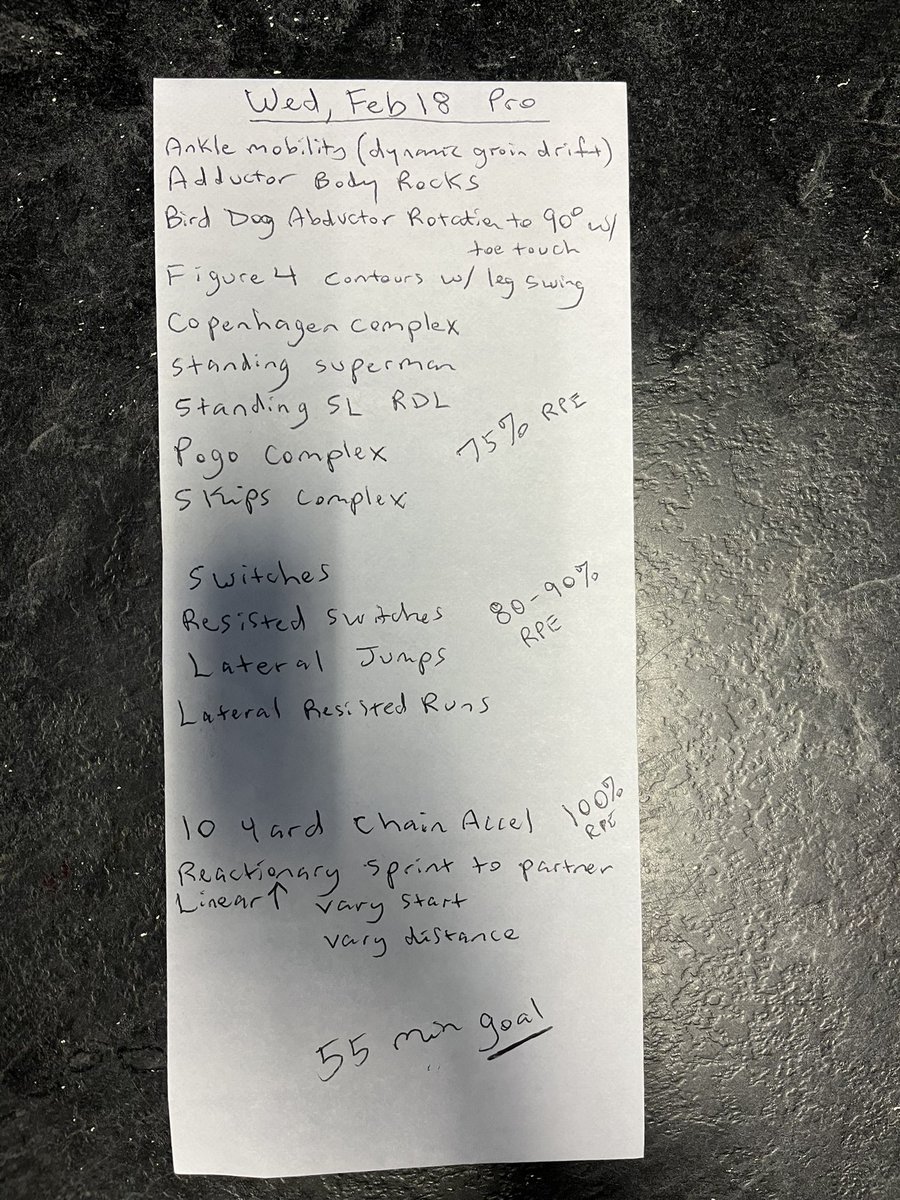 Wed, Feb 18 Pro
Ankle mobility (dynamic groin drift)
Adductor Body Rocks
Bird Dog Abductor Rotation to 90° w/
toe touch
Figure 4 contours w/ leg swing
Copenhagen complex
Standing superman
Standing SL RDL
75% RPE
Pogo Complex
Skips Complex
Switches
80-90%
RPE
Resisted switches
Lateral Jumps
Lateral Resisted Runs
10 yard Chain Accel 100%
RPE
Reactionary sprint to partner
Linear ↑ vary start
vary distance
55 min goal